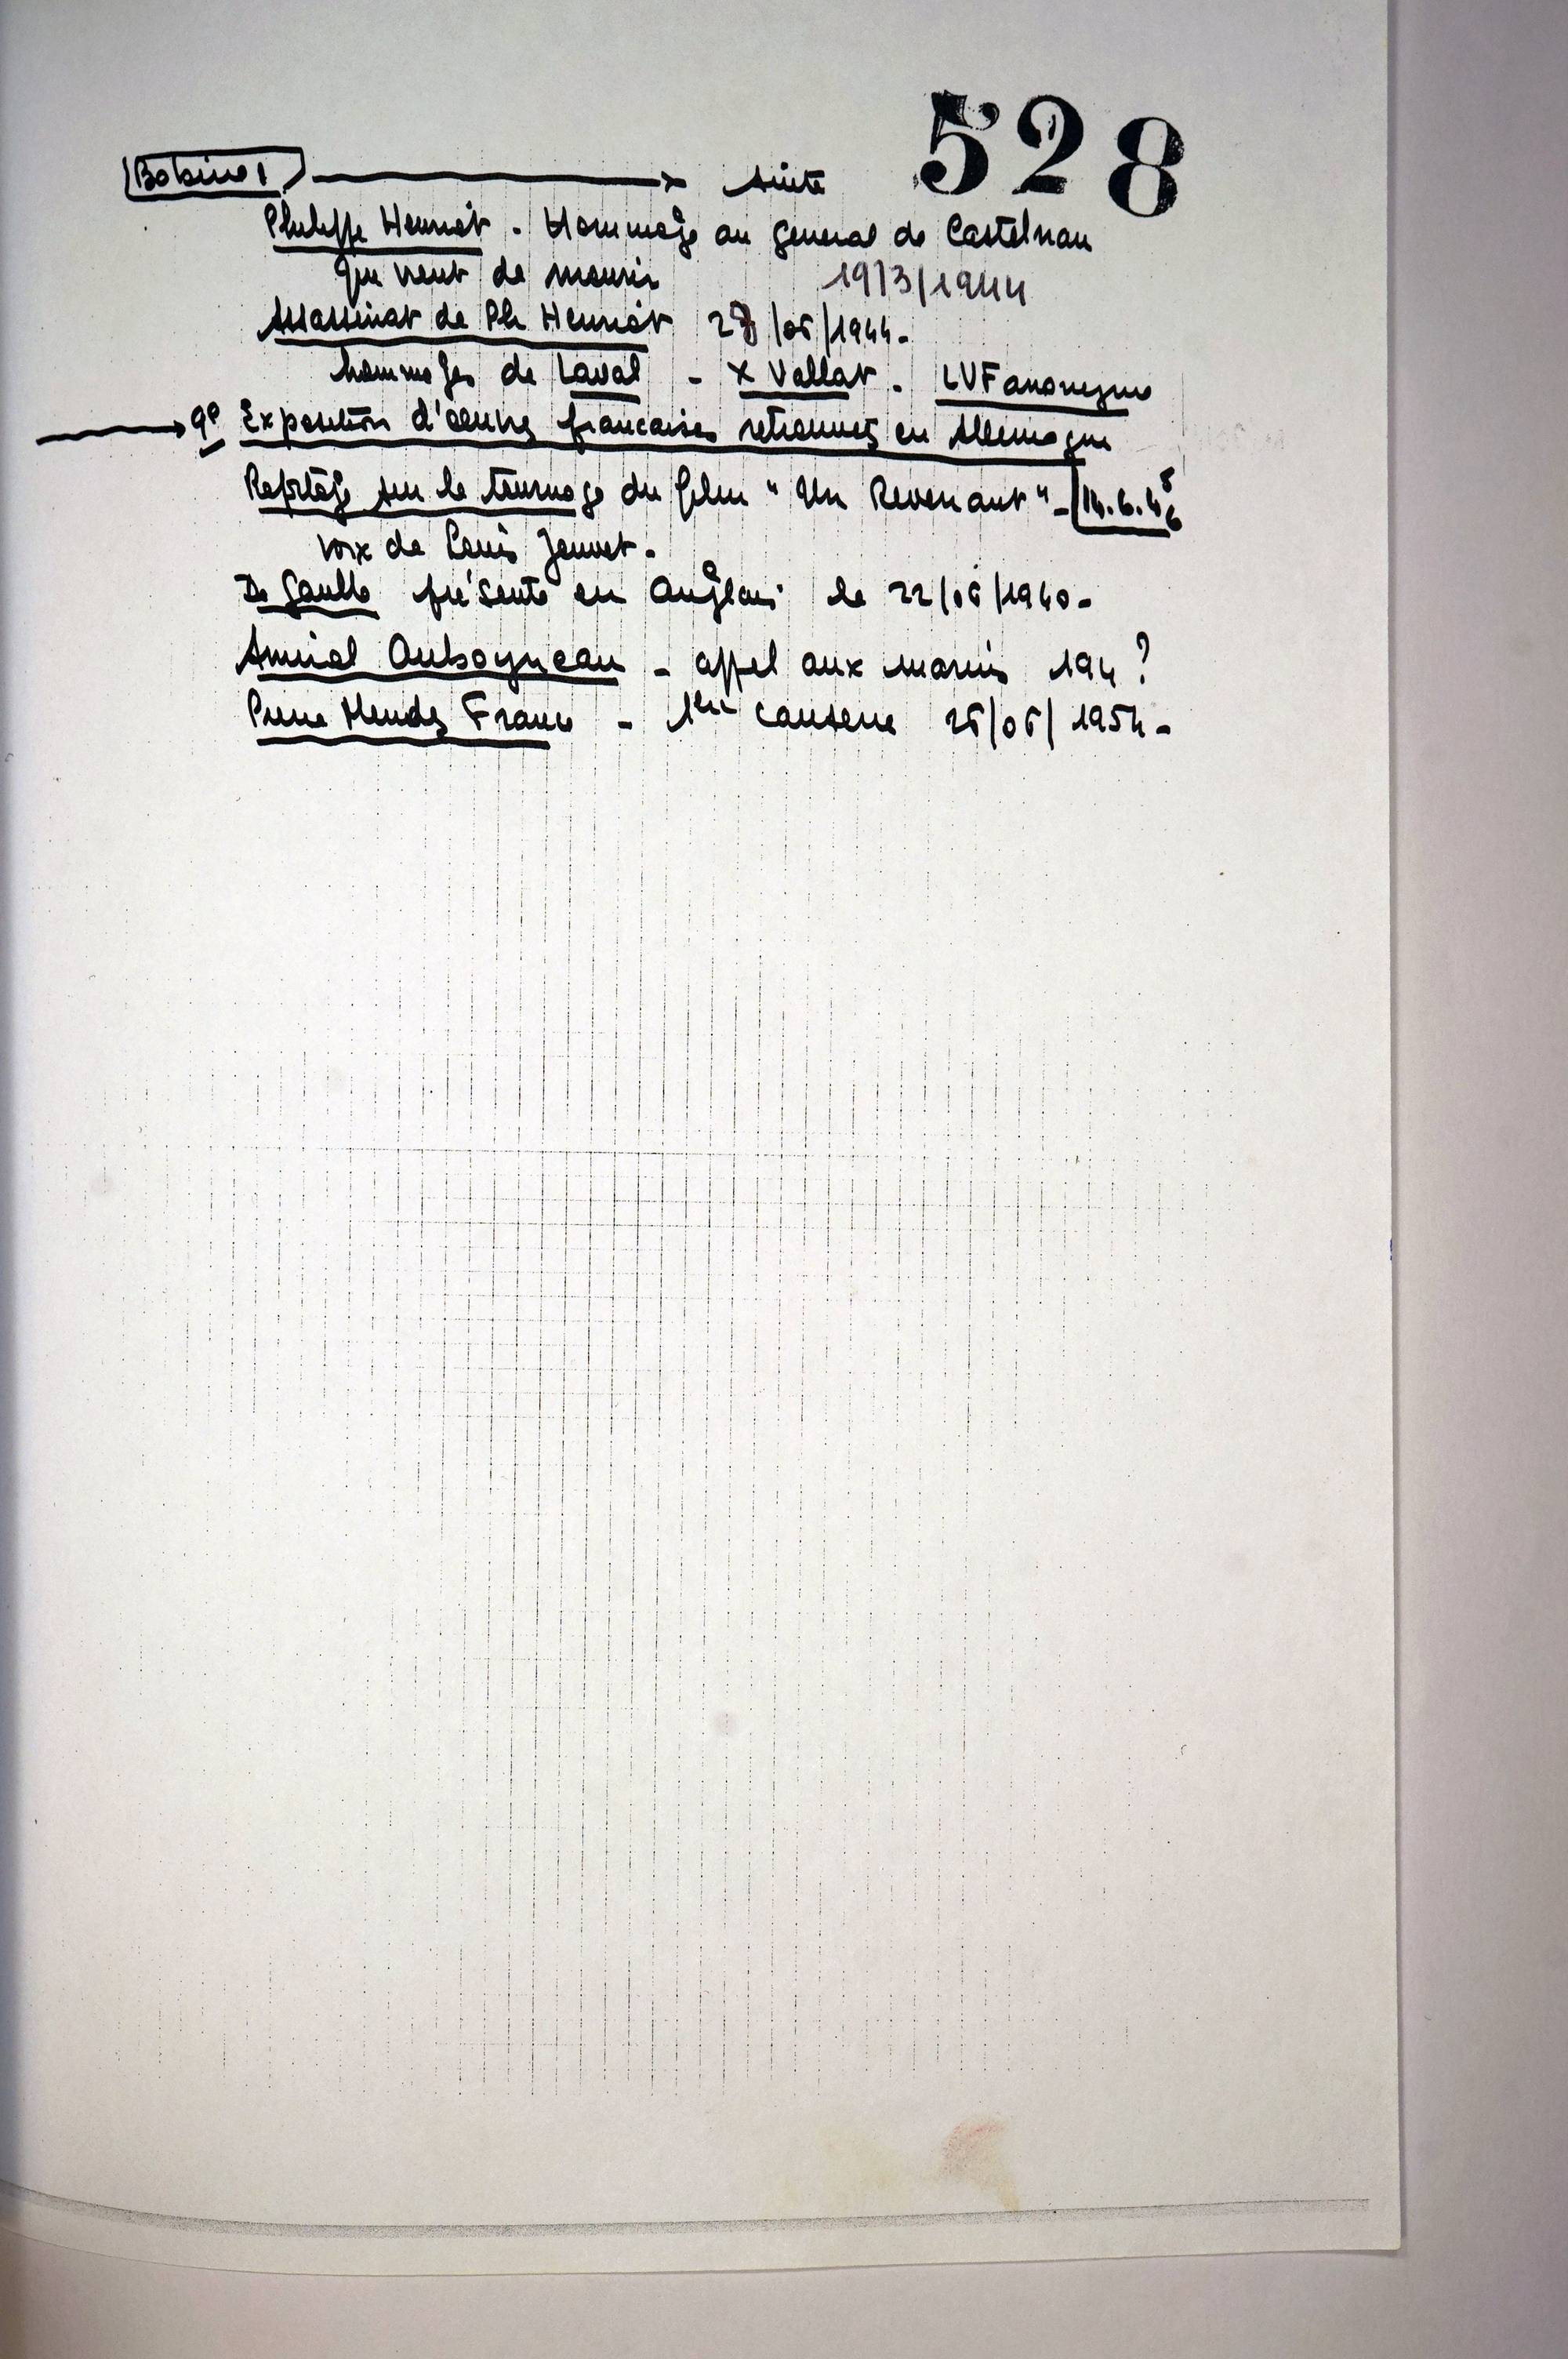 528
Bobine 1 → suite
Philippe Henriot - Hommage au général de Castelnau
qui vient de mourir 19/3/1944
Assassinat de Ph Henriot 28/06/1944 -
hommages de Laval - X Vallat - LVF anonyme
→ 9e Exposition d'œuvres françaises retrouvées en Allemagne
Reportage sur le tournage du film "Un Revenant" - 14.6.46
voix de Louis Jouvet -
De Gaulle présenté en Anglais le 22/06/1940 -
Amiral Auboyneau - appel aux marins 194?
Pierre Mendes France - 1ère causerie 26/06/1954 -